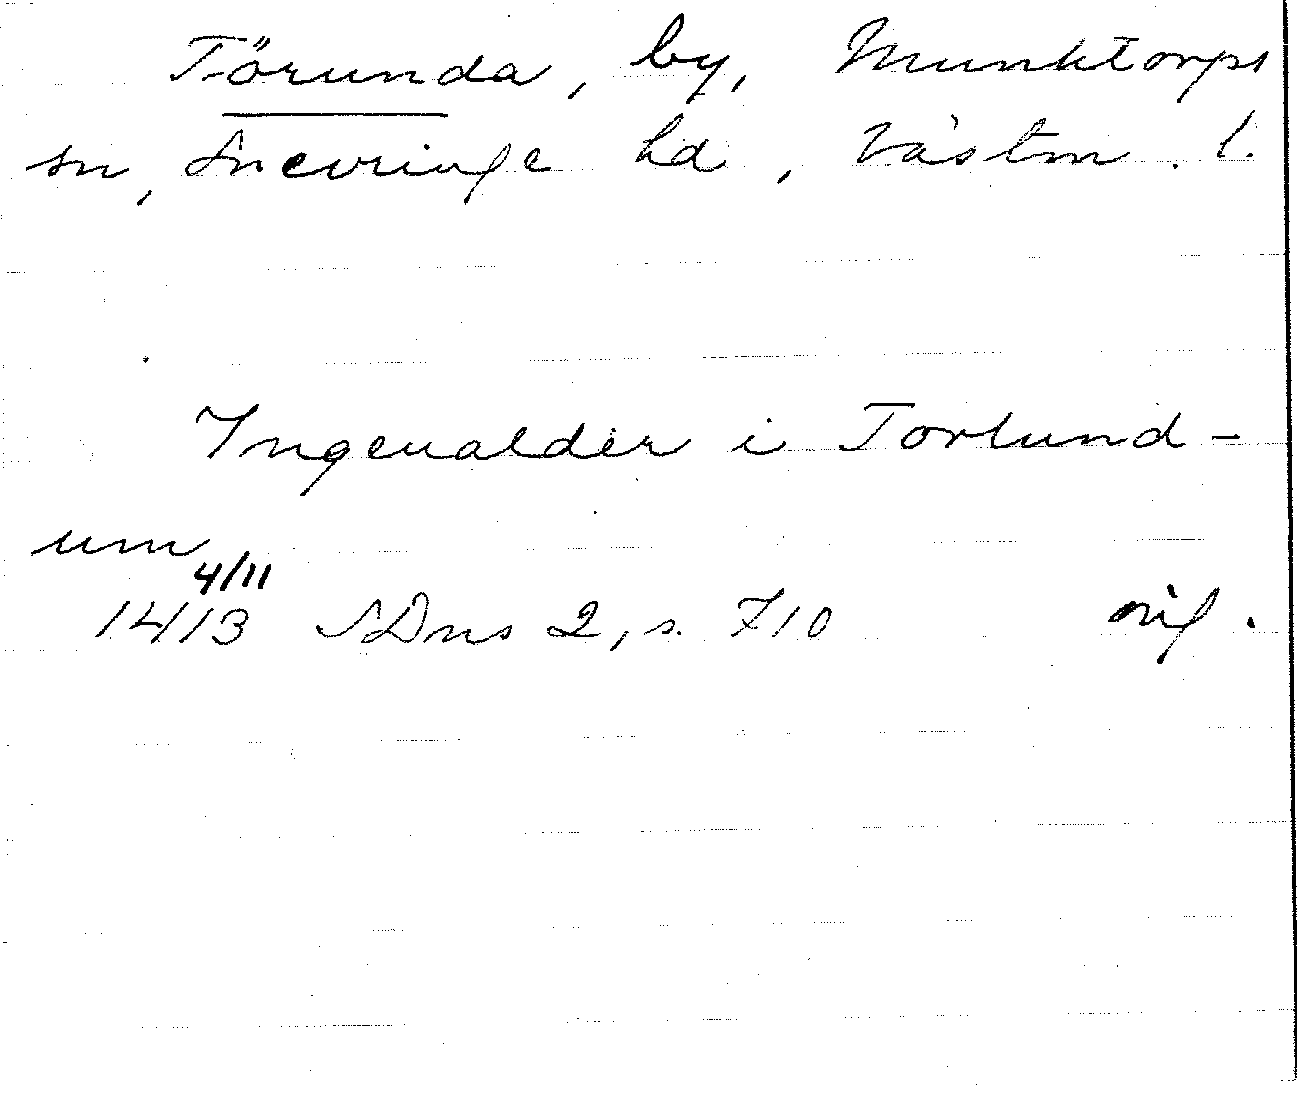 Törunda, by, Munktorps
sn, Snevringe hd, Västm. l.
Ingeualder i Torlund-
um
4/11
1413 SDns 2, s. 710 orig.